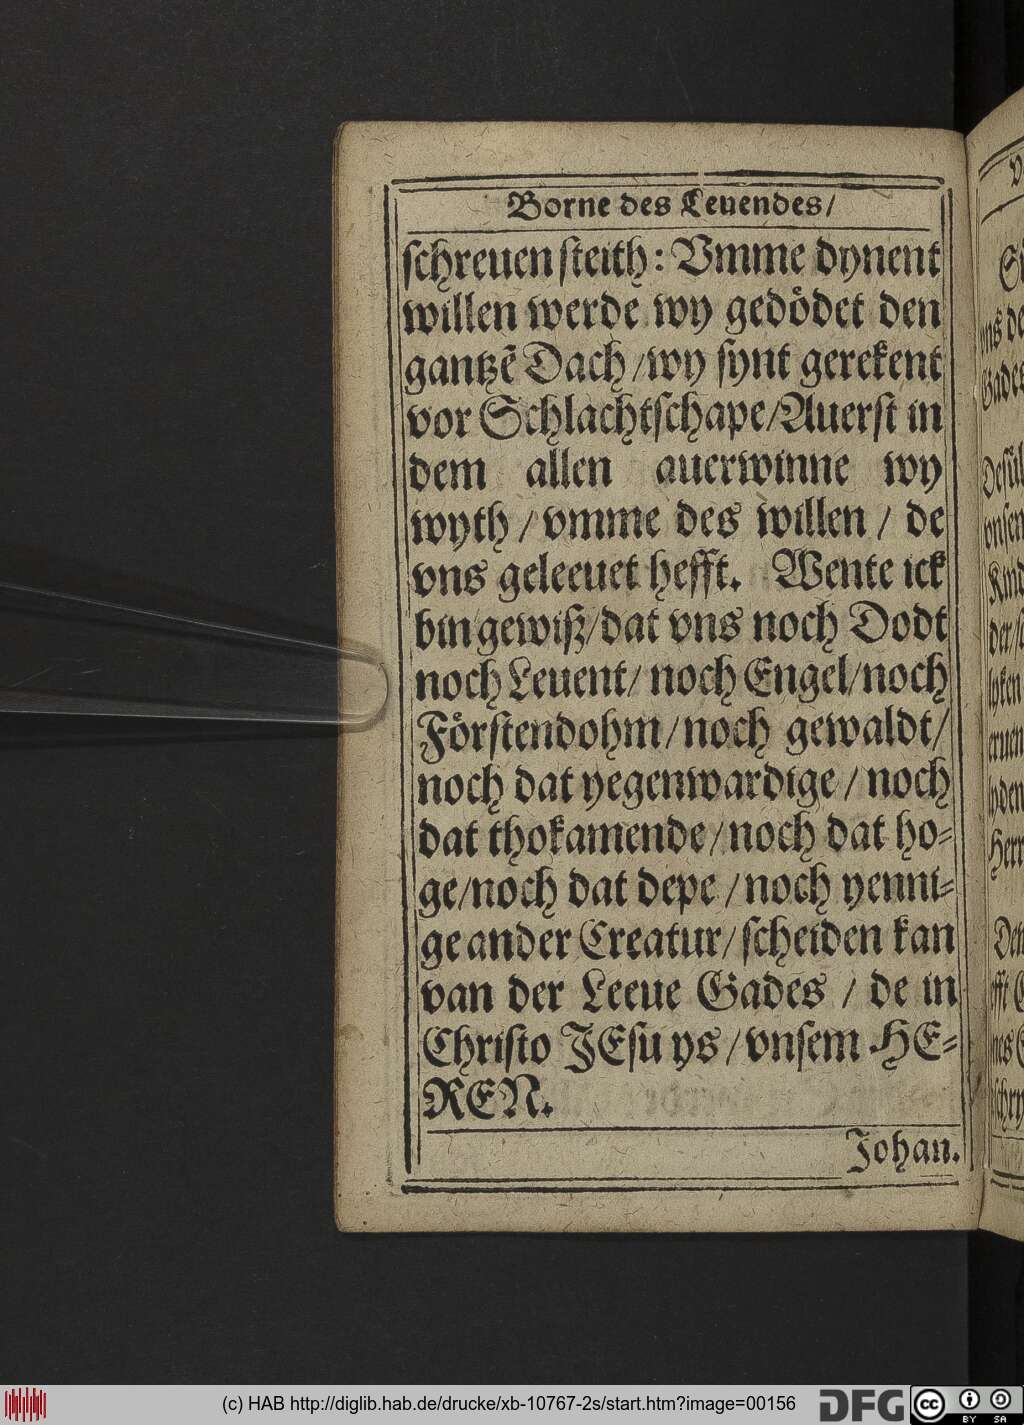 Borne des Leuendes/
schreuen steith: Vmme dynent
willen werde wy gedödet den
gantzẽ Dach/wy synt gerekent
vor Schlachtschape/Auerst in
dem allen auerwinne wy
wyth / vmme des willen / de
vns geleeuet hefft. Wente ick
bin gewiß/dat vns noch Dodt
noch Leuent/ noch Engel/noch
Förstendohm/noch gewaldt/
noch dat yegenwardige / noch
dat thokamende/noch dat ho=
ge/noch dat depe / noch yenni=
ge ander Creatur/scheiden kan
van der Leeue Gades / de in
Christo JEsu ys / vnsem HE=
REN.
Johan.
(c) HAB http://diglib.hab.de/drucke/xb-10767-2s/start.htm?image=00156
DFG
cc
BY SA